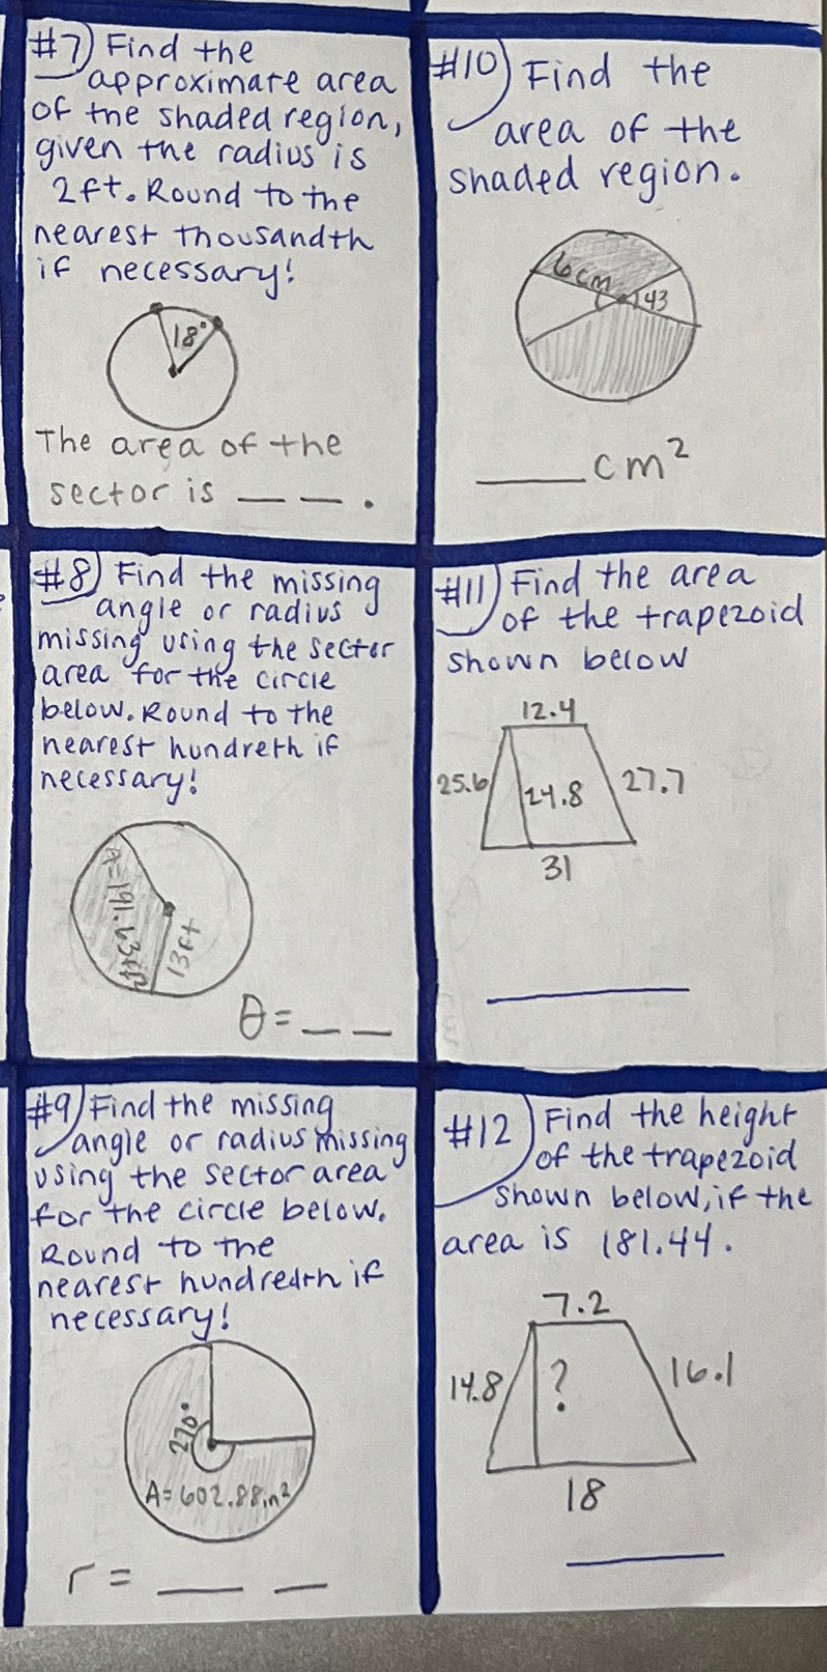 #7) Find the
approximate area
of the shaded region,
given the radius is
2ft. Round to the
nearest thousandth
if necessary!
18°
The area of the
sector is __ __.
#8) Find the missing
angle or radius
missing using the sector
area for the circle
below. Round to the
nearest hundreth if
necessary!
A=191.63ft²
13ft
θ= __ __
#9) Find the missing
angle or radius missing
using the sector area
for the circle below.
Round to the
nearest hundredth if
necessary!
270°
A=602.88in²
r = ___ __
#10) Find the
area of the
shaded region.
6cm
143
____ cm²
#11) Find the area
of the trapezoid
shown below
12.4
25.6
24.8
27.7
31
#12) Find the height
of the trapezoid
shown below, if the
area is 181.44.
7.2
14.8
?
16.1
18